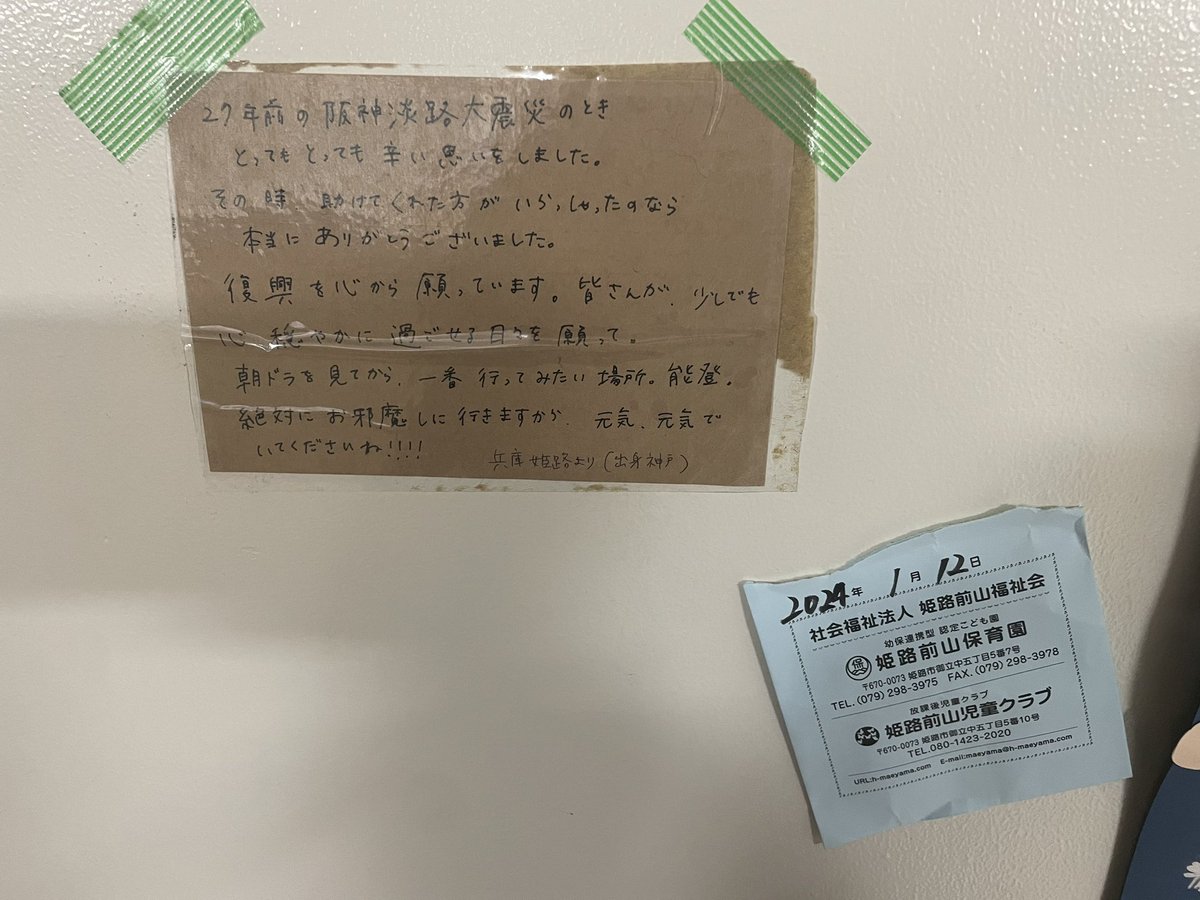 27年前の阪神淡路大震災のとき
とってもとっても辛い思いをしました。
その時 助けてくれた方がいらっしゃったのなら
本当にありがとうございました。
復興を心から願っています。皆さんが、少しでも
心穏やかに過ごせる日々を願って。
朝ドラを見てから、一番行ってみたい場所。能登。
絶対にお邪魔しに行きますから、元気、元気で
いてくださいね!!!!
兵庫姫路より(出身神戸)
2024年 1月 12日
社会福祉法人 姫路前山福祉会
幼保連携型 認定こども園
保 姫路前山保育園
〒670-0073 姫路市御立中五丁目5番7号
TEL.(079)298-3975 FAX.(079)298-3978
放課後児童クラブ
姫路前山児童クラブ
〒670-0073 姫路市御立中五丁目5番10号
TEL.080-1423-2020
URL:h-maeyama.com E-mail:maeyama@h-maeyama.com